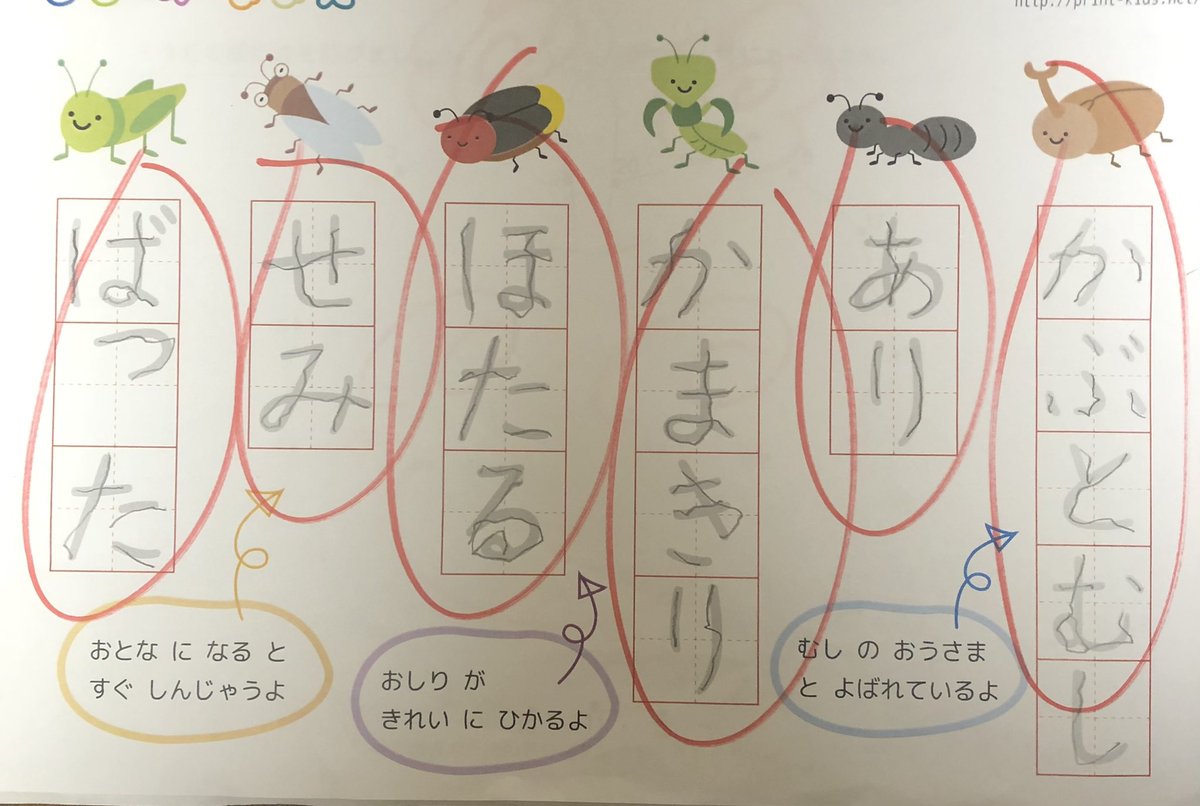 http://print-kids.net/
かぶとむし
あり
かまきり
ほたる
せみ
ばった
むし の おうさま
と よばれているよ
おしり が
きれい に ひかるよ
おとな に なる と
すぐ しんじゃうよ